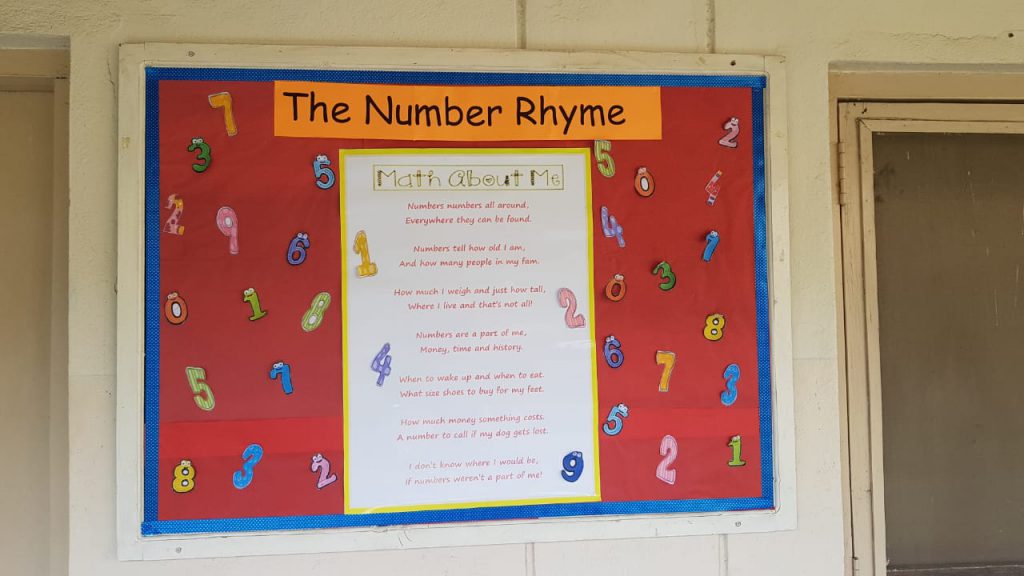 The Number Rhyme
Math About Me
Numbers numbers all around,
Everywhere they can be found.
Numbers tell how old I am,
And how many people in my fam.
How much I weigh and just how tall,
Where I live and that's not all!
Numbers are a part of me,
Money, time and history.
When to wake up and when to eat.
What size shoes to buy for my feet.
How much money something costs.
A number to call if my dog gets lost.
I don't know where I would be,
If numbers weren't a part of me!
7
3
5
2
9
6
0
1
8
5
7
8
3
2
1
4
2
9
5
0
2
1
4
7
0
3
6
8
7
3
5
2
1